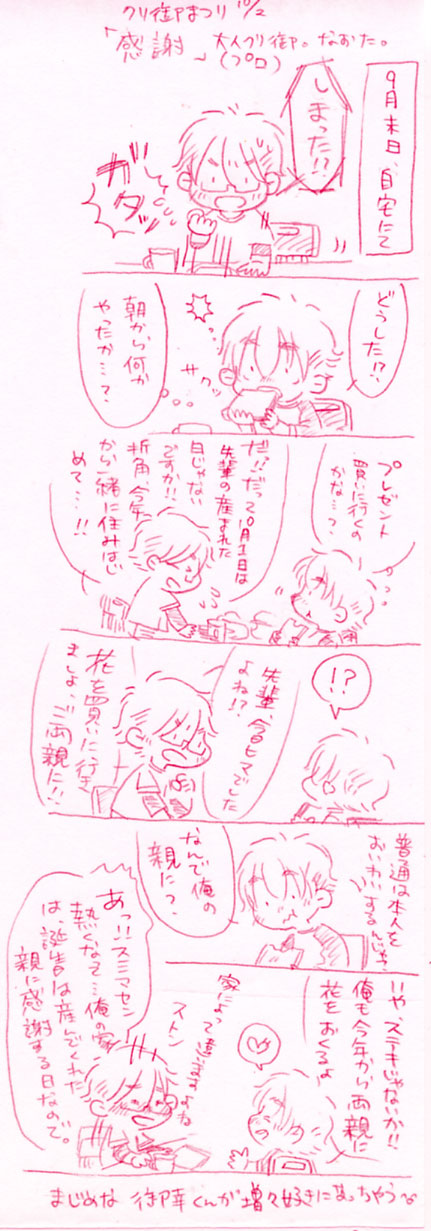 クリ御まつり 10/2
「感謝」大人クリ御。なおた。
(プロ)
9月末日、自宅にて
しまった!!
ガタッ
どうした!?
サクッ
朝から何か
やったか…?
プレゼント
買いに行くの
かな…?
だっ!!だって10月1日は
先輩の産まれた
日じゃない
ですか!!
折角、今年
から一緒に住みはじ
めて…!!
!?
先輩、今日ヒマでした
よね!?
花を買いに行き
ましょ、ご両親に!!
普通は本人を
おいわいするんじゃ…
なんで俺の
親に?
いや、ステキじゃないか!!
俺も今年から両親に
花をおくるよ
家によって違いますよね
ストン
あっ!!スミマセン
熱くなって…俺の家
は、誕生日は産んでくれた
親に感謝する日なので。
まじめな御幸くんが増々好きになっちゃう